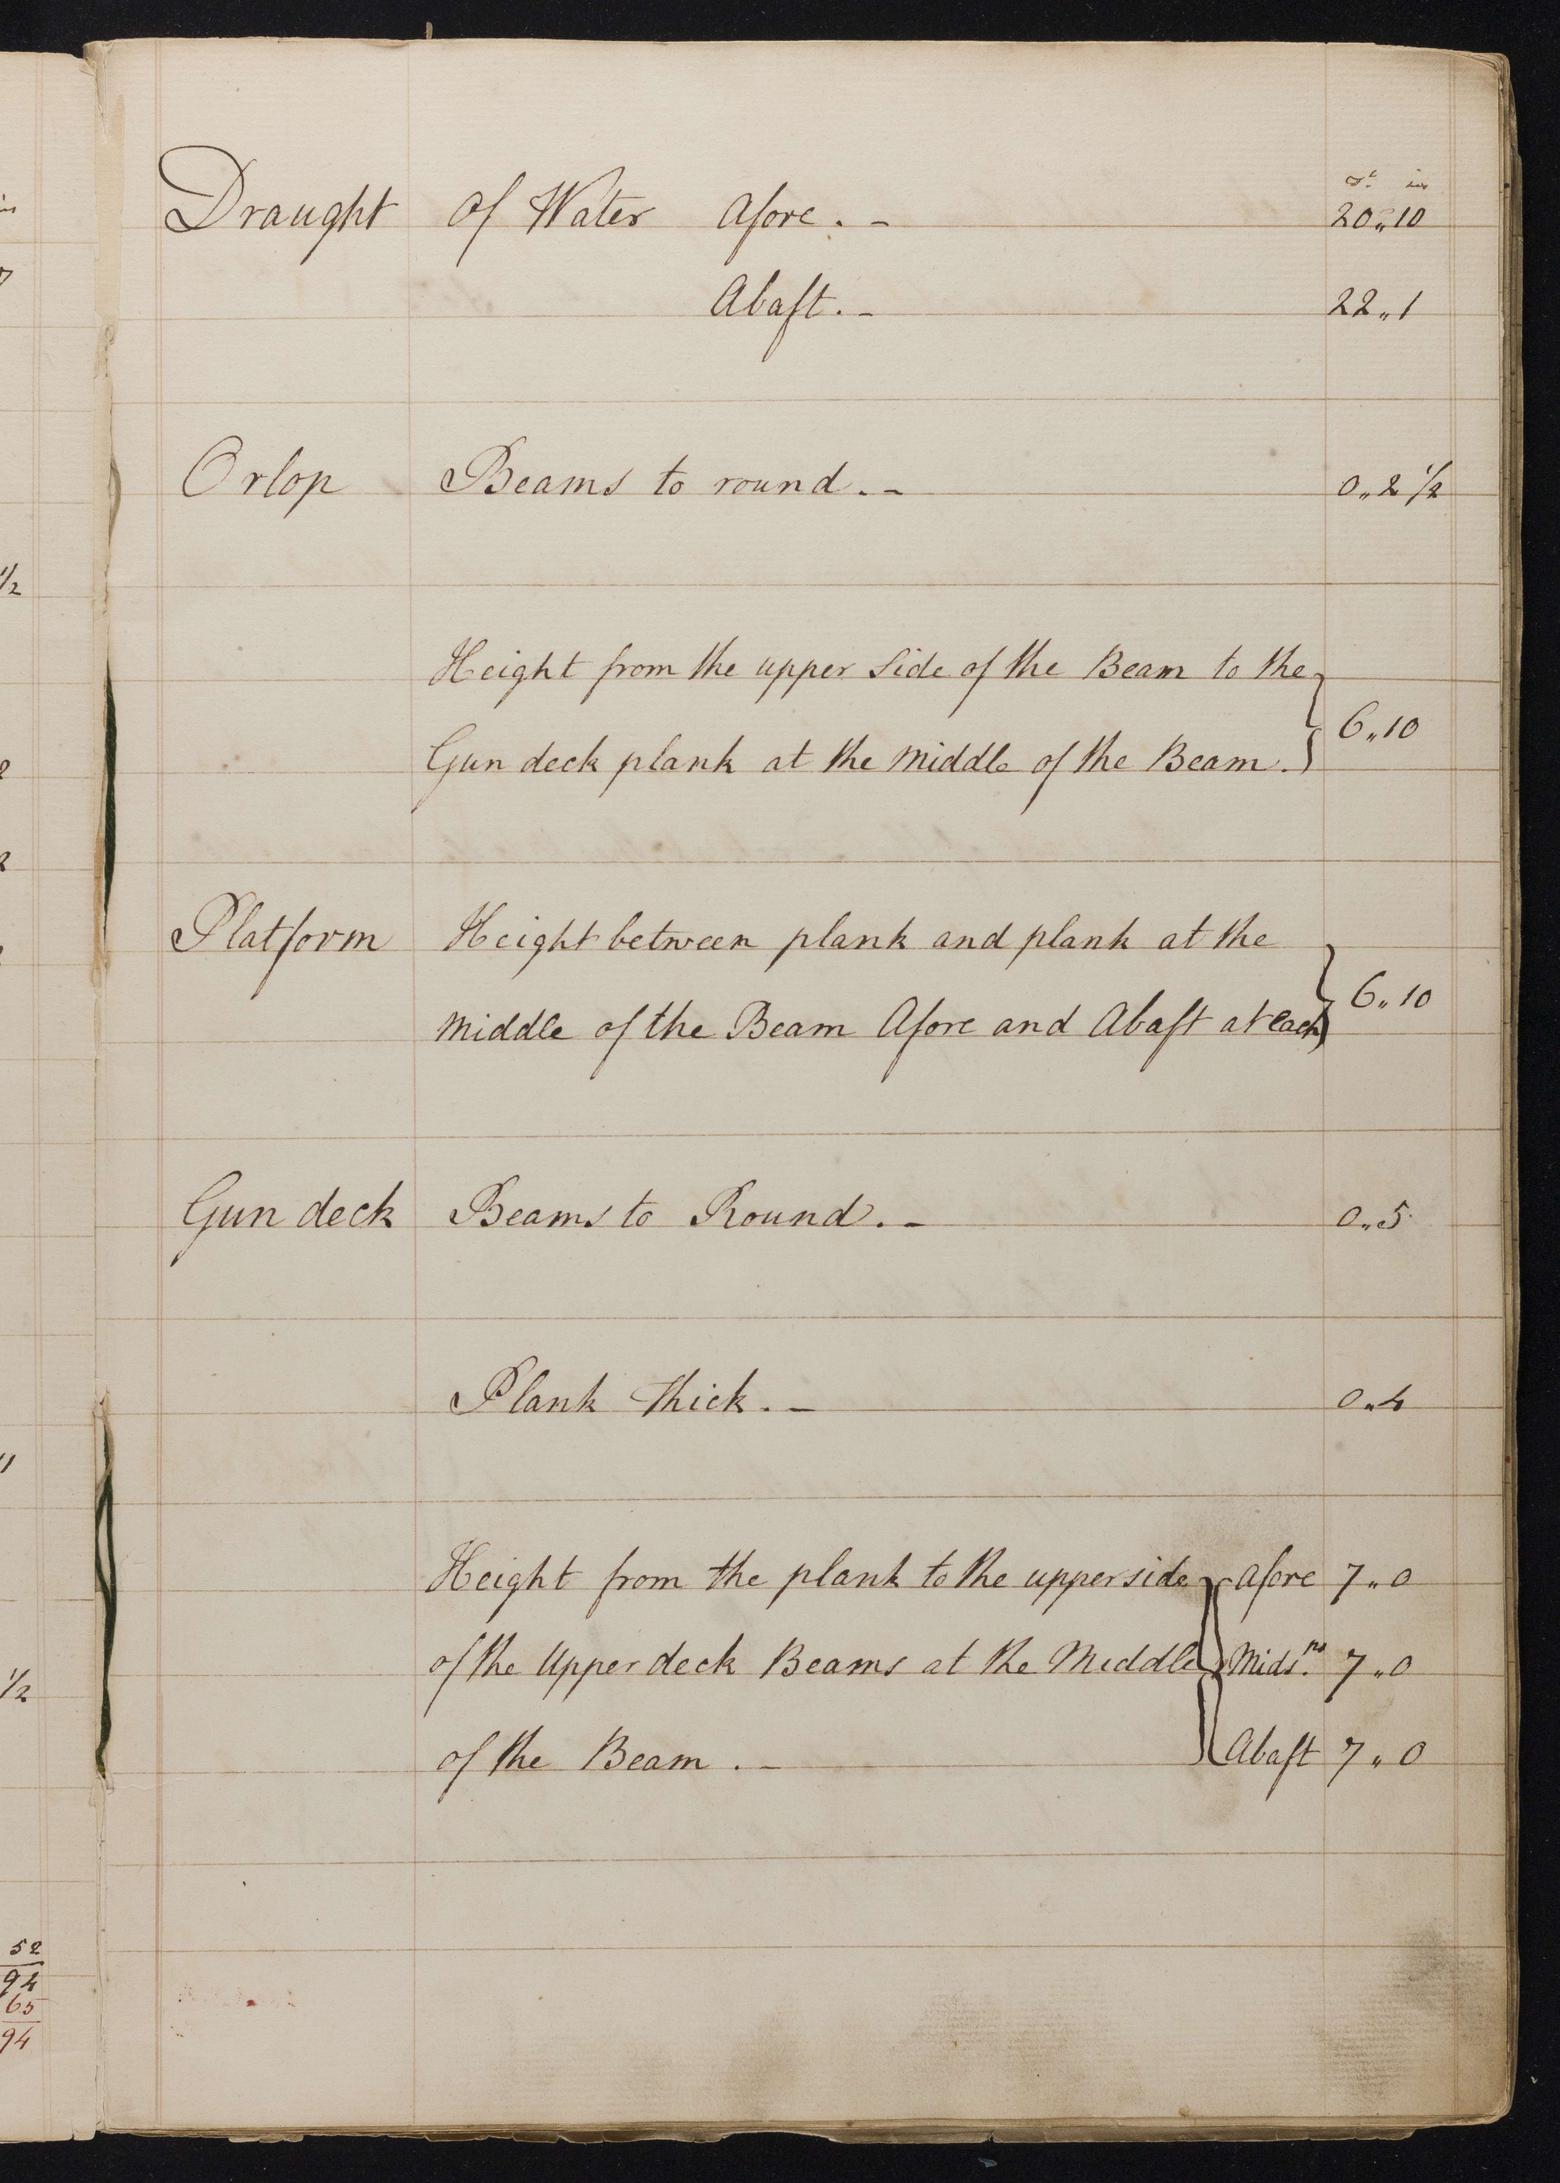 Ft. in
Draught of Water Afore. - 20„10
Abaft. - 22„1
Orlop Beams to round. - 0„2 1/2
Height from the upper Side of the Beam to the
Gun deck plank at the Middle of the Beam. } 6„10
Platform Height between plank and plank at the
Middle of the Beam Afore and Abaft at each } 6„10
Gun deck Beams to Round. - 0„5
Plank thick. - 0„4
Height from the plank to the upperside } Afore 7„0
of the Upper deck Beams at the Middle } Mids.ps 7„0
of the Beam. - } Abaft 7„0
in
7
1/2
2
2
11
1/2
52
94
65
94